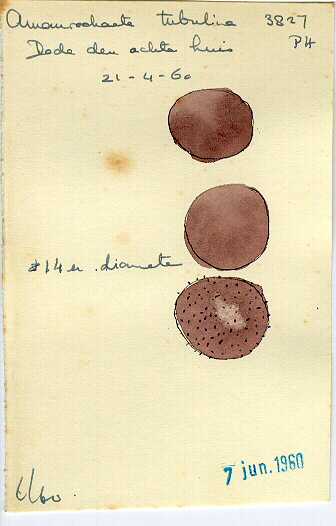 Amaurochaete tubulina 3827
Dode den achter huis PH
21-4-60
±14 µ. diameter
6/60.
7 jun. 1960